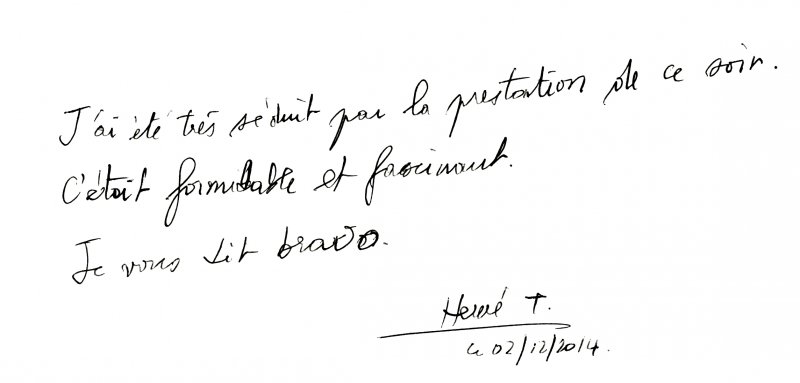 J'ai été très séduit par la prestation de ce soir.
C'était formidable et fascinant.
Je vous dit bravo.
Hervé T.
Le 02/12/2014.